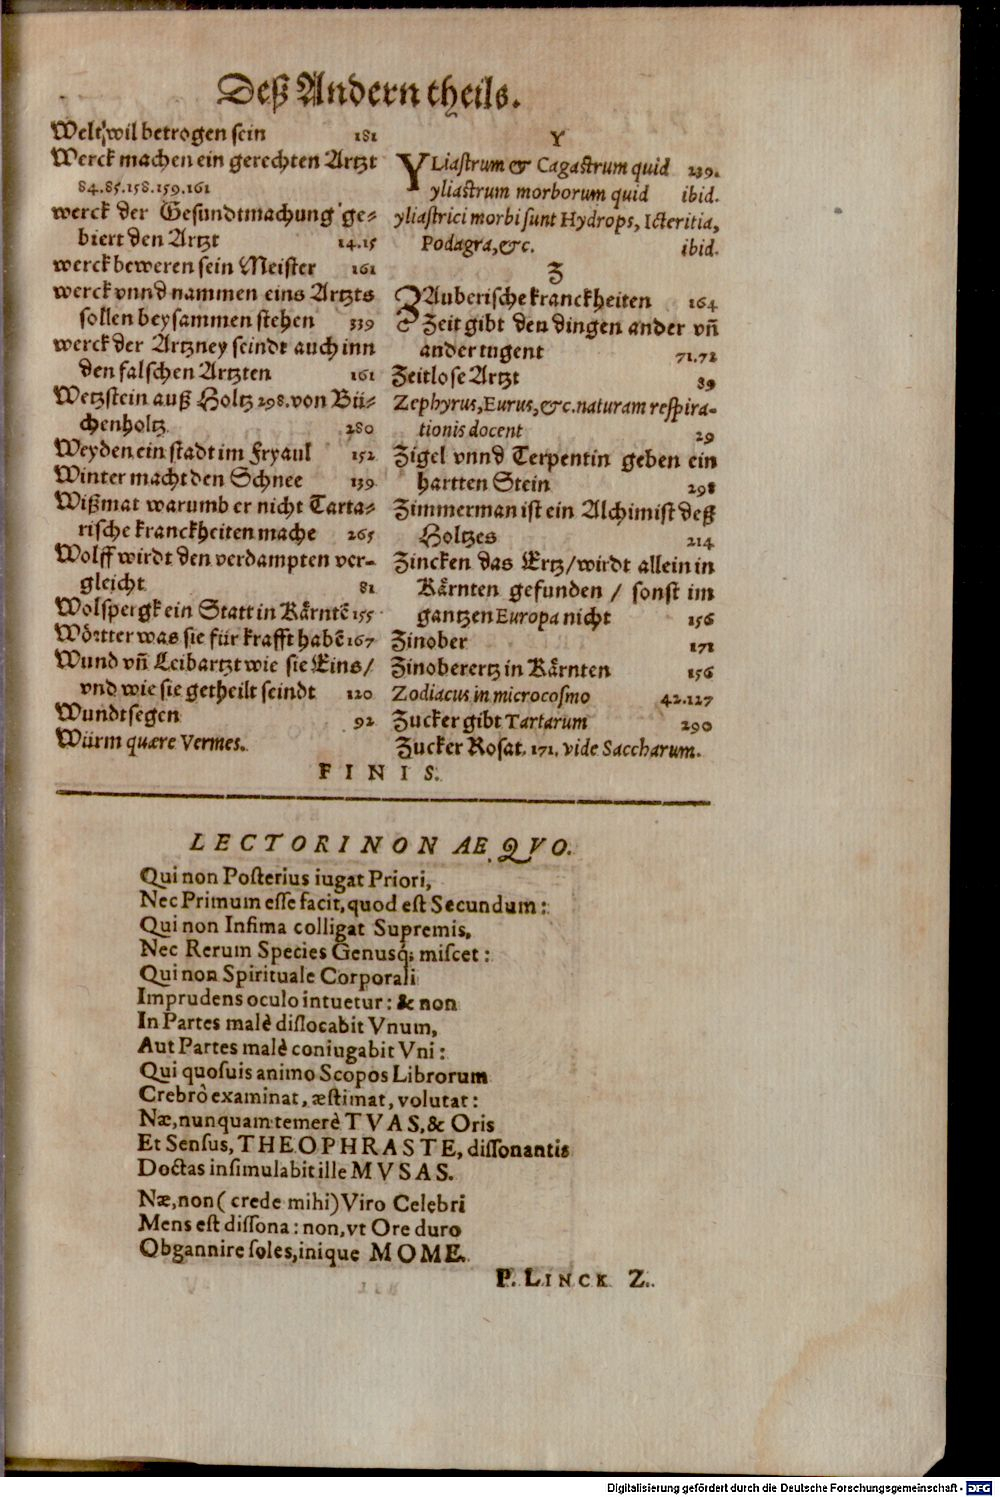 Deß Andern theils.
Welt wil betrogen sein 181
Werck machen ein gerechten Artzt
84.85.158.159.161
werck der Gesundtmachung ge⸗
biert den Artzt 14.15
werck beweren sein Meister 161
werck vnnd nammen eins Artzts
sollen beysammen stehen 339
werck der Artzney seindt auch inn
den falschen Artzten 161
Wetzstein auß Holtz 298. von Bü⸗
chenholtz 280
Weyden ein stadt im Fryaul 152
Winter macht den Schnee 139
Wißmat warumb er nicht Tarta⸗
rische kranckheiten mache 265
Wolff wirdt den verdampten ver⸗
gleicht 81
Wolspergk ein Statt in Kärntẽ 155
Wörtter was sie für krafft habẽ 167
Wund vñ Leibartzt wie sie Eins /
vnd wie sie getheilt seindt 120
Wundtsegen 92
Würm quære Vermes.
Y
YLiastrum & Cagastrum quid 239.
yliastrum morborum quid ibid.
yliastrici morbi sunt Hydrops, Icteritia,
Podagra, &c. ibid.
Z
ZAuberische kranckheiten 164
Zeit gibt den dingen ander vñ
ander tugent 71.72
Zeitlose Artzt 89
Zephyrus, Eurus, &c. naturam respira-
tionis docent 29
Zigel vnnd Terpentin geben ein
hartten Stein 298
Zimmerman ist ein Alchimist deß
Holtzes 214
Zincken das Ertz / wirdt allein in
Kärnten gefunden / sonst im
gantzen Europa nicht 156
Zinober 171
Zinoberertz in Kärnten 156
Zodiacus in microcosmo 42.127
Zucker gibt Tartarum 290
Zucker Rosat. 171. vide Saccharum.
FINIS.
LECTORI NON AEQVO.
Qui non Posterius iugat Priori,
Nec Primum esse facit, quod est Secundum:
Qui non Infima colligat Supremis,
Nec Rerum Species Genusq; miscet:
Qui non Spirituale Corporali
Imprudens oculo intuetur: & non
In Partes malè dislocabit Vnum,
Aut Partes malè coniugabit Vni:
Qui quosuis animo Scopos Librorum
Crebrò examinat, æstimat, volutat:
Næ, nunquam temerè TVAS, & Oris
Et Sensus, THEOPHRASTE, dissonantis
Doctas insimulabit ille MVSAS.
Næ, non (crede mihi) Viro Celebri
Mens est dissona: non, vt Ore duro
Obgannire soles, inique MOME.
P. LINCK Z.
Digitalisierung gefördert durch die Deutsche Forschungsgemeinschaft - DFG